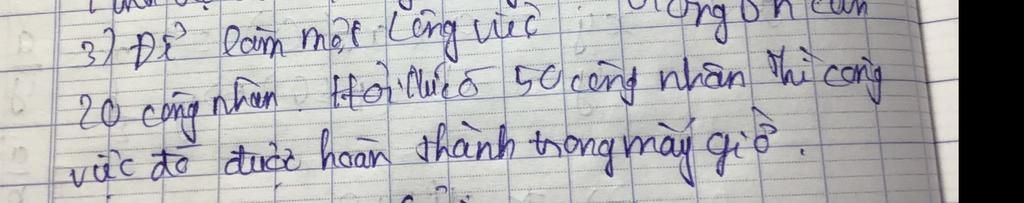 3) Để làm một công việc trong 8h cần
20 công nhân. Hỏi nếu có 50 công nhân thì công
việc đó được hoàn thành trong mấy giờ.